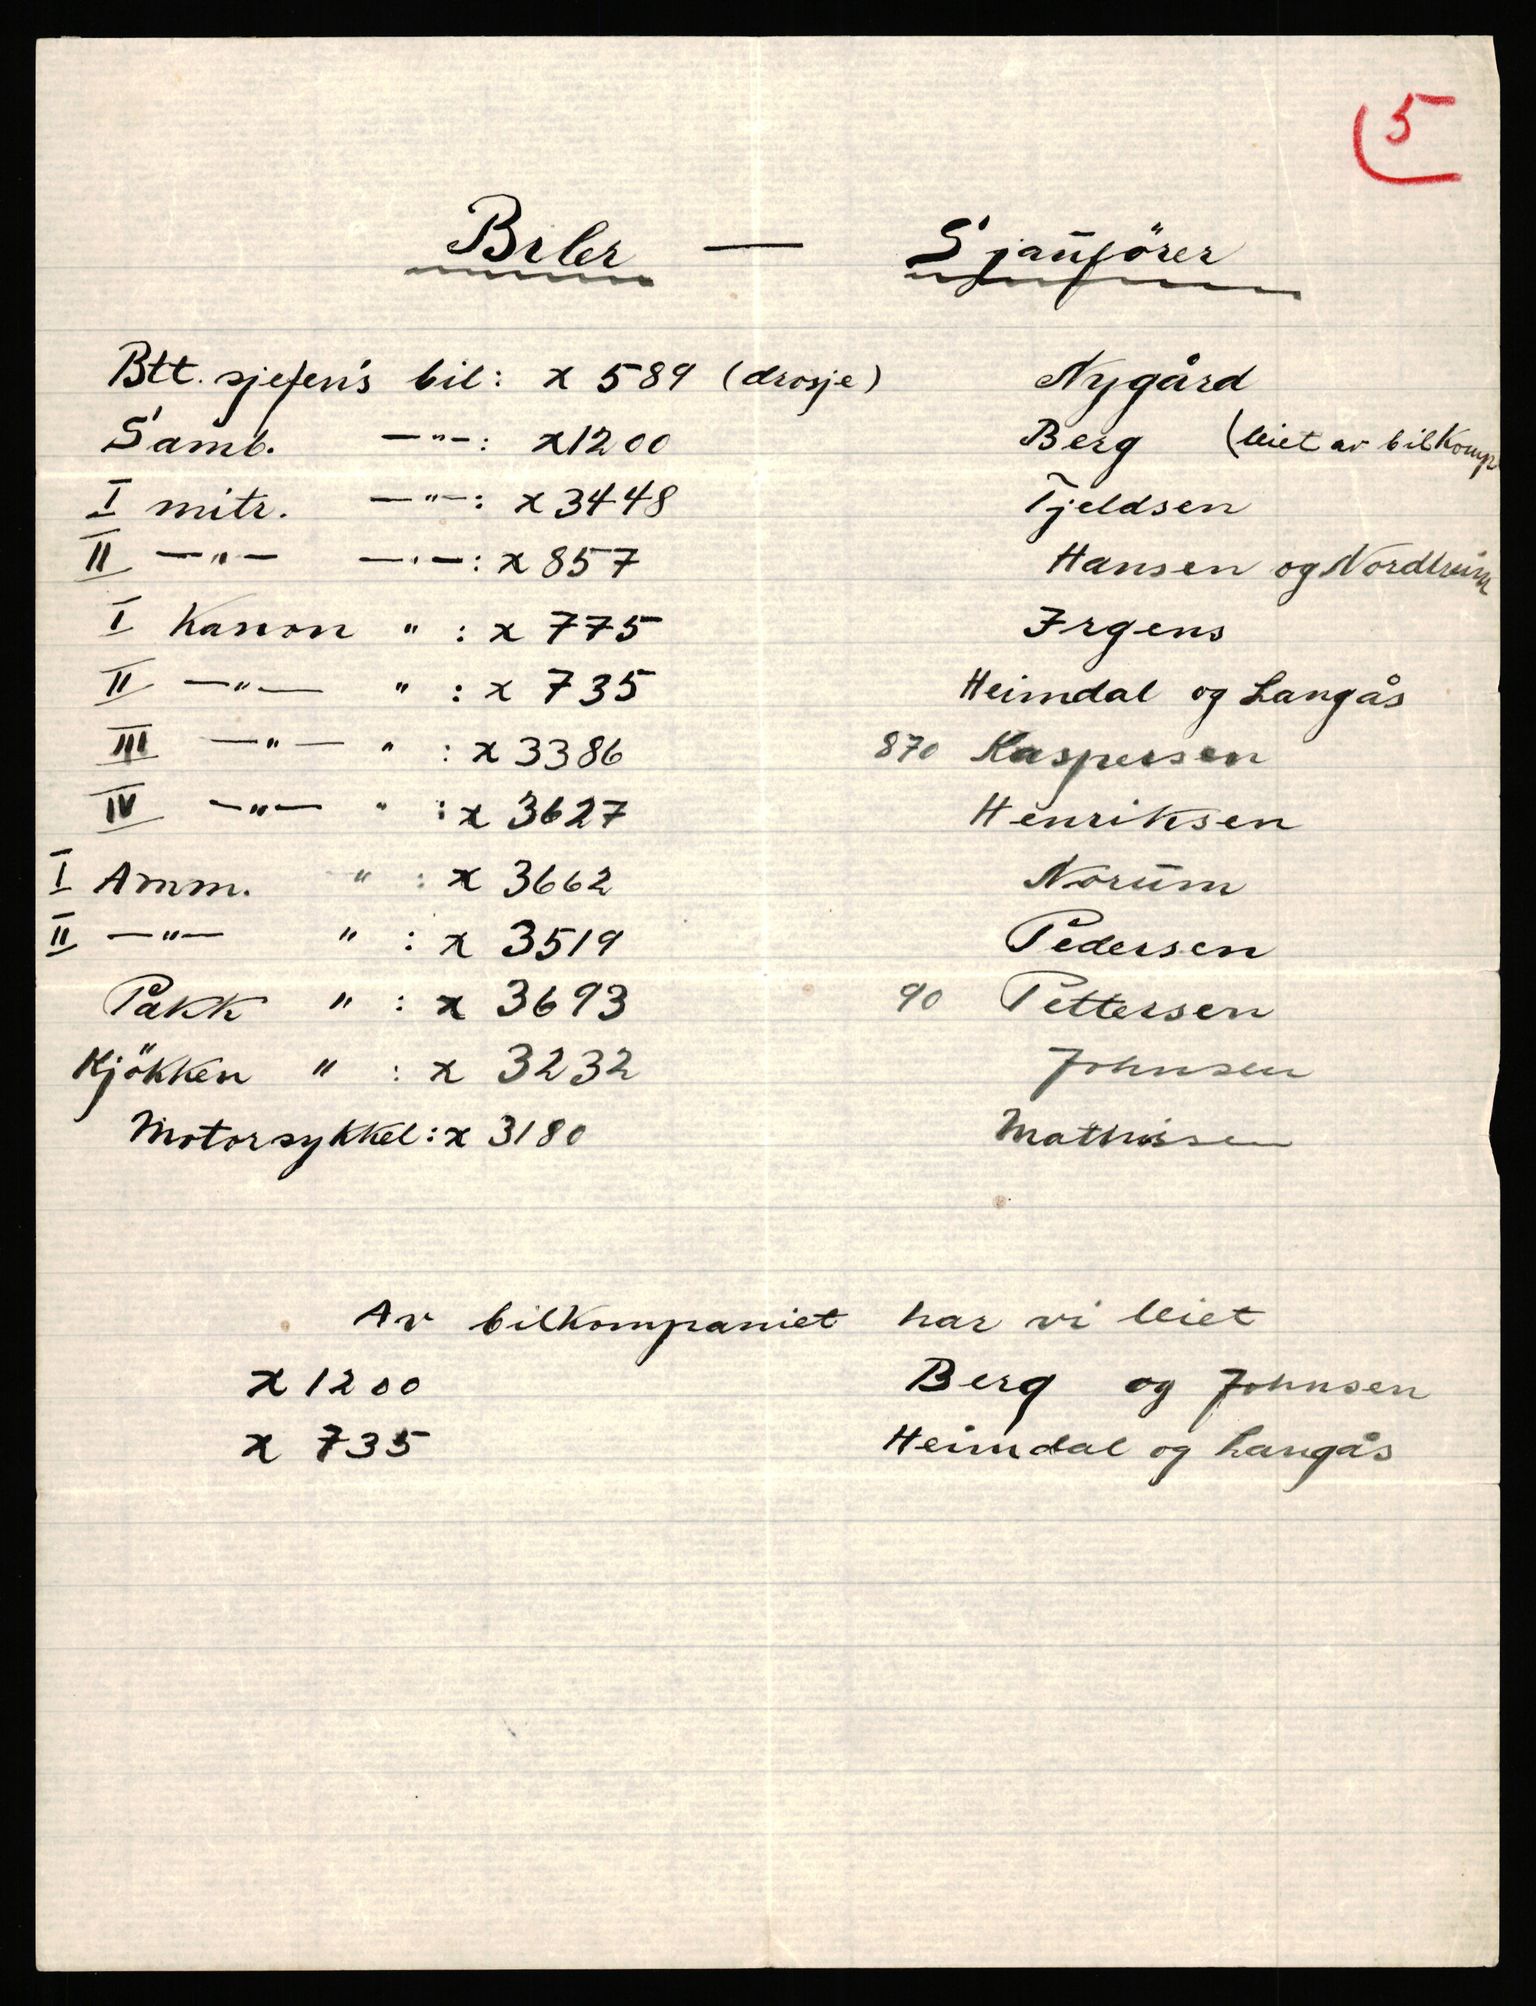 5
Biler — Sjaufører
Btt. sjefen's bil: x 589 (drosje) Nygård
Samb. —"—: x 1200 Berg (leiet av bilkomp
I mitr. —"—: x 3448 Tjeldsen
II —"— —"—: x 857 Hansen og Nordbrum
I Kanon " : x 775 Irgens
II —"— " : x 735 Heimdal og Langås
III —"— " : x 3386 870 Kaspersen
IV —"— " : x 3627 Henriksen
I Amm. " : x 3662 Norum
II —"— " : x 3519 Pedersen
Pakk " : x 3693 90 Pettersen
Kjökken " : x 3232 Johnsen
Motorsykkel : x 3180 Mathissen
Av bilkompaniet har vi leiet
x 1200 Berg og Johnsen
x 735 Heimdal og Langås